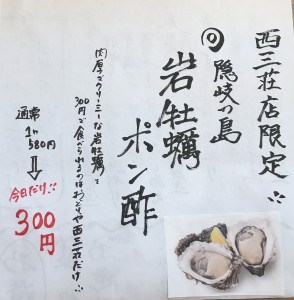 西三荘店限定!!
隠岐の島
岩牡蠣
ポン酢
肉厚でクリーミーな岩牡蠣を
300円で食べられるのはおどりや西三荘だけ!!
通常
1ヶ
580円
今日だけ!!
300円